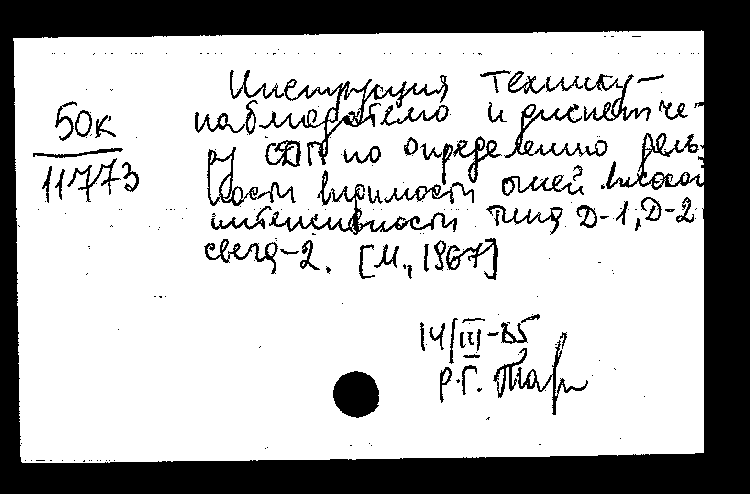 50к
11773
Инструкция технику-
наблюдателю и диспетче-
ру СДП по определению даль-
ности видимости огней высокой
интенсивности типа Д-1, Д-2
свеча-2. [М., 1967]
14/III-85
Р.Г.